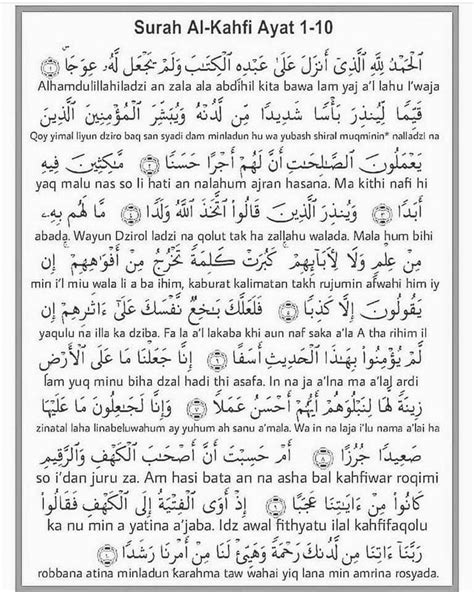 Surah Al-Kahfi Ayat 1-10
ٱلْحَمْدُ لِلَّهِ ٱلَّذِىٓ أَنزَلَ عَلَىٰ عَبْدِهِ ٱلْكِتَـٰبَ وَلَمْ يَجْعَل لَّهُۥ عِوَجَا ۜ ١
Alhamdulillahiladzi an zala ala abdihil kita bawa lam yaj a'l lahu I'waja
قَيِّمًا لِّيُنذِرَ بَأْسًا شَدِيدًا مِّن لَّدُنْهُ وَيُبَشِّرَ ٱلْمُؤْمِنِينَ ٱلَّذِينَ
Qoy yimal liyun dziro baq san syadi dam minladun hu wa yubash shiral muqminin* nalladzi na
يَعْمَلُونَ ٱلصَّـٰلِحَـٰتِ أَنَّ لَهُمْ أَجْرًا حَسَنًا ٢ مَّـٰكِثِينَ فِيهِ
yaq malu nas so li hati an nalahum ajran hasana. Ma kithi nafi hi
أَبَدًا ٣ وَيُنذِرَ ٱلَّذِينَ قَالُوا۟ ٱتَّخَذَ ٱللَّهُ وَلَدًا ٤ مَّا لَهُم بِهِۦ
abada. Wayun Dzirol ladzi na qolut tak ha zallahu walada. Mala hum bihi
مِنْ عِلْمٍ وَلَا لِـَٔابَآئِهِمْ كَبُرَتْ كَلِمَةً تَخْرُجُ مِنْ أَفْوَٰهِهِمْ إِن
min i'l miu wala li a ba ihim, kaburat kalimatan takh rujumin afwahi him iy
يَقُولُونَ إِلَّا كَذِبًا ٥ فَلَعَلَّكَ بَـٰخِعٌ نَّفْسَكَ عَلَىٰٓ ءَاثَـٰرِهِمْ إِن
yaqulu na illa ka dziba. Fa la a'l lakaba khi aun naf saka a'la A tha rihim il
لَّمْ يُؤْمِنُوا۟ بِهَـٰذَا ٱلْحَدِيثِ أَسَفًا ٦ إِنَّا جَعَلْنَا مَا عَلَى ٱلْأَرْضِ
lam yuq minu biha dzal hadi thi asafa. In na ja a'lna ma a'lal ardi
زِينَةً لَّهَا لِنَبْلُوَهُمْ أَيُّهُمْ أَحْسَنُ عَمَلًا ٧ وَإِنَّا لَجَـٰعِلُونَ مَا عَلَيْهَا
zinatal laha linabeluwahum ay yuhum ah sanu a'mala. Wa in na laja i'lu nama a'lai ha
صَعِيدًا جُرُزًا ٨ أَمْ حَسِبْتَ أَنَّ أَصْحَـٰبَ ٱلْكَهْفِ وَٱلرَّقِيمِ
so i'dan juru za. Am hasi bata an na asha bal kahfiwar roqimi
كَانُوا۟ مِنْ ءَايَـٰتِنَا عَجَبًا ٩ إِذْ أَوَى ٱلْفِتْيَةُ إِلَى ٱلْكَهْفِ فَقَالُوا۟
ka nu min a yatina a'jaba. Idz awal fithyatu ilal kahfifaqolu
رَبَّنَآ ءَاتِنَا مِن لَّدُنكَ رَحْمَةً وَهَيِّئْ لَنَا مِنْ أَمْرِنَا رَشَدًا ١٠
robbana atina minladun karahma taw wahai yiq lana min amrina rosyada.